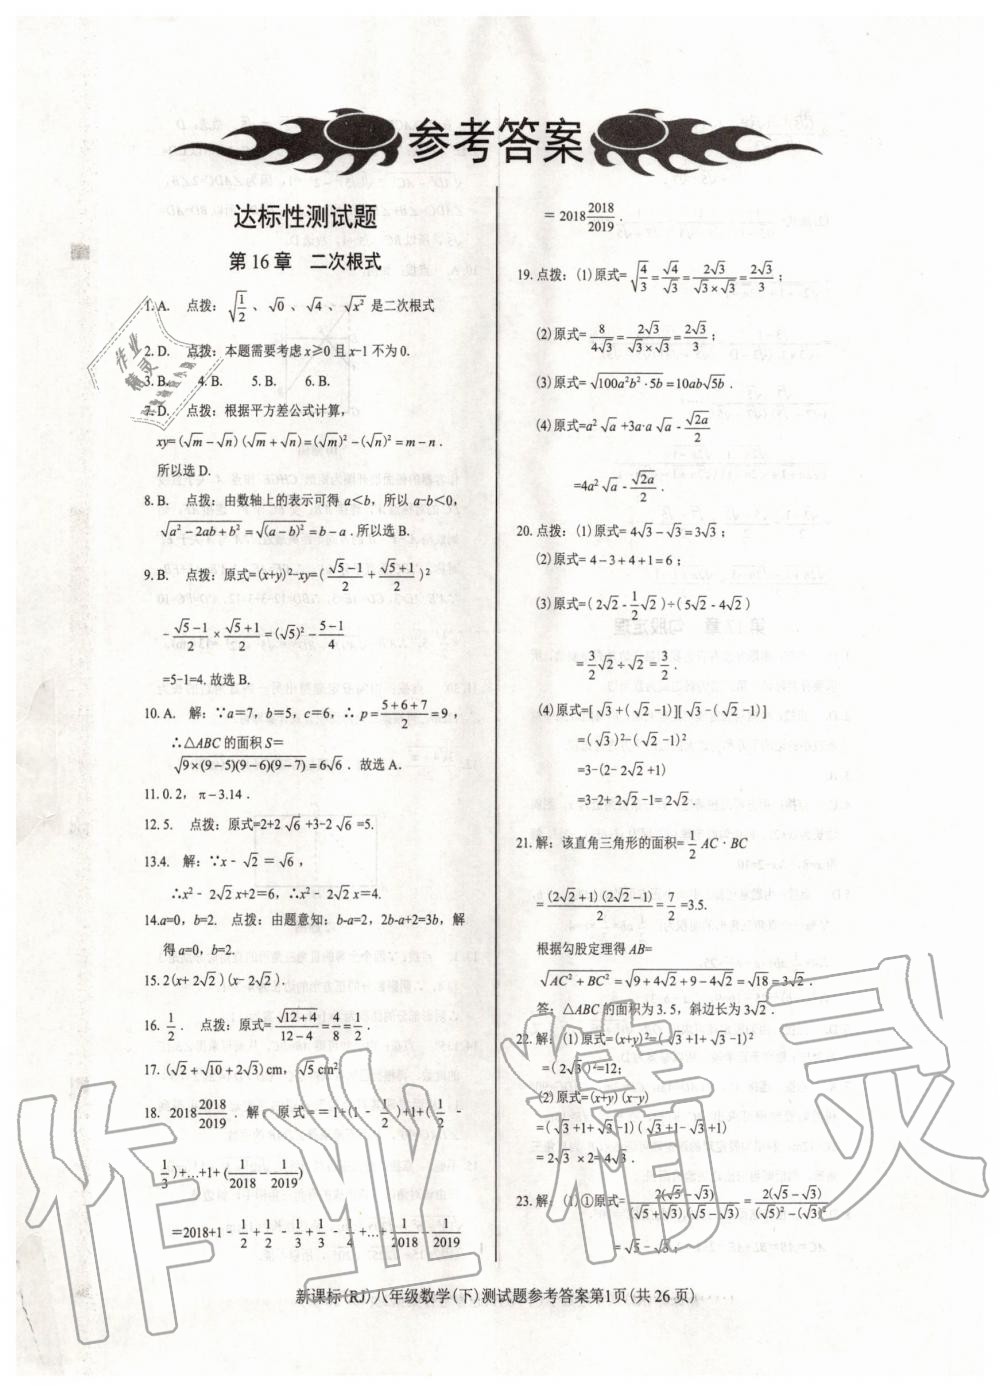 参考答案
达标性测试题
第 16 章　二次根式
1. A.　点拨：√(1/2)、√0、√4、√x² 是二次根式
2. D.　点拨：本题需要考虑 x≥0 且 x-1 不为 0.
3. B.　4. B.　5. B.　6. B.
7. D.　点拨：根据平方差公式计算，
xy=(√m－√n)(√m＋√n)=(√m)²－(√n)²=m－n.
所以选 D.
8. B.　点拨：由数轴上的表示可得 a＜b，所以 a-b＜0，
√(a²－2ab＋b²)=√((a－b)²)=b－a.所以选 B.
9. B.　点拨：原式=(x+y)²-xy=((√5－1)/2＋(√5+1)/2)²
-(√5－1)/2×(√5＋1)/2=(√5)²－(5－1)/4
=5-1=4. 故选 B.
10. A.　解：∵a=7，b=5，c=6，∴p=(5+6+7)/2=9，
∴△ABC 的面积 S=
√(9×(9－5)(9－6)(9－7))=6√6．故选 A.
11. 0. 2，π－3.14．
12. 5.　点拨：原式=2+2√6+3-2√6=5.
13.4.　解：∵x－√2=√6，
∴x²－2√2x+2=6，∴x²－2√2x=4.
14.a=0，b=2.　点拨：由题意知：b-a=2，2b-a+2=3b，解
得 a=0，b=2.
15. 2(x+2√2)(x-2√2).
16. 1/2．　点拨：原式=√(12+4)/(12－4)=4/8=1/2.
17. (√2+√10+2√3)cm，√5cm²
18. 2018 2018/2019．解：原式==1+(1－1/2)+1+(1/2－
1/3)+…+1+(1/2018－1/2019)
=2018+1－1/2+1/2－1/3+1/3－1/4+…+1/2018－1/2019
=2018 2018/2019．
19. 点拨：(1)原式=√(4/3)=√4/√3=2√3/(√3×√3)=2√3/3；
(2)原式=8/(4√3)=2√3/(√3×√3)=2√3/3；
(3)原式=√(100a²b²·5b)=10ab√5b．
(4)原式=a²√a+3a·a√a-√2a/2
=4a²√a-√2a/2.
20. 点拨：(1)原式=4√3－√3=3√3；
(2)原式=4－3+4+1=6；
(3)原式=(2√2-1/2√2)÷(5√2-4√2)
=3/2√2÷√2=3/2.
(4)原式=[√3+(√2-1)][√3-(√2-1)]
=(√3)²-(√2-1)²
=3-(2-2√2+1)
=3-2+2√2-1=2√2.
21. 解：该直角三角形的面积=1/2AC·BC
=(2√2+1)(2√2－1)/2=7/2=3.5.
根据勾股定理得 AB=
√(AC²+BC²)=√(9+4√2+9－4√2)=√18=3√2．
答：△ABC 的面积为 3. 5，斜边长为 3√2．
22. 解：(1)原式=(x+y)²=(√3+1+√3-1)²
=(2√3)²=12；
(2)原式=(x+y)(x-y)
=(√3+1+√3-1)(√3+1-√3+1)
=2√3×2=4√3．
23. 解：(1)①原式=2(√5－√3)/((√5+√3)(√5－√3))=2(√5－√3)/((√5)²－(√3)²)
=√5－√3；
新课标(RJ)八年级数学(下)测试题参考答案第1页(共 26 页)
作业精灵